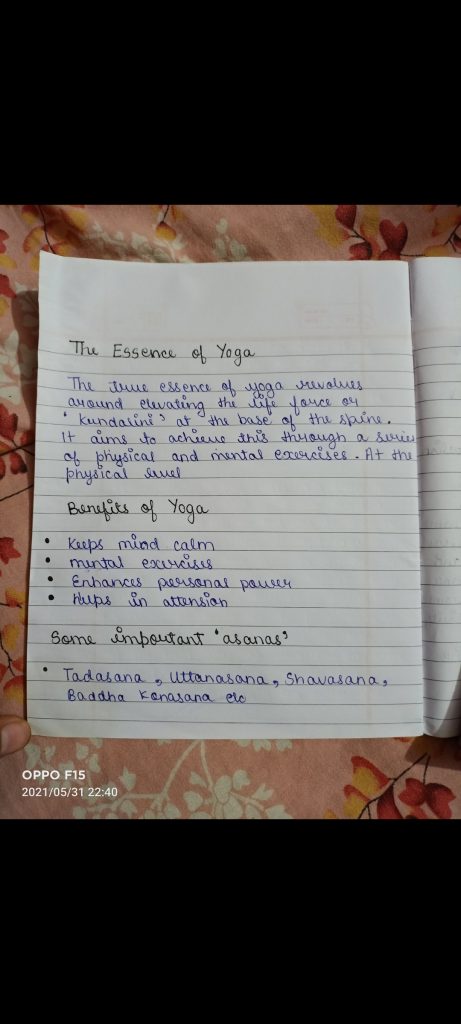 The Essence of Yoga
The true essence of yoga revolves
around elevating the life force or
'kundasini' at the base of the spine.
It aims to achieve this through a series
of physical and mental exercises. At the
physical level
Benefits of Yoga
• Keeps mind calm
• mental exercises
• Enhances personal power
• Helps in attension
Some important 'asanas'
• Tadasana, Uttanasana, Shavasana,
Baddha Konasana etc
OPPO F15
2021/05/31 22:40